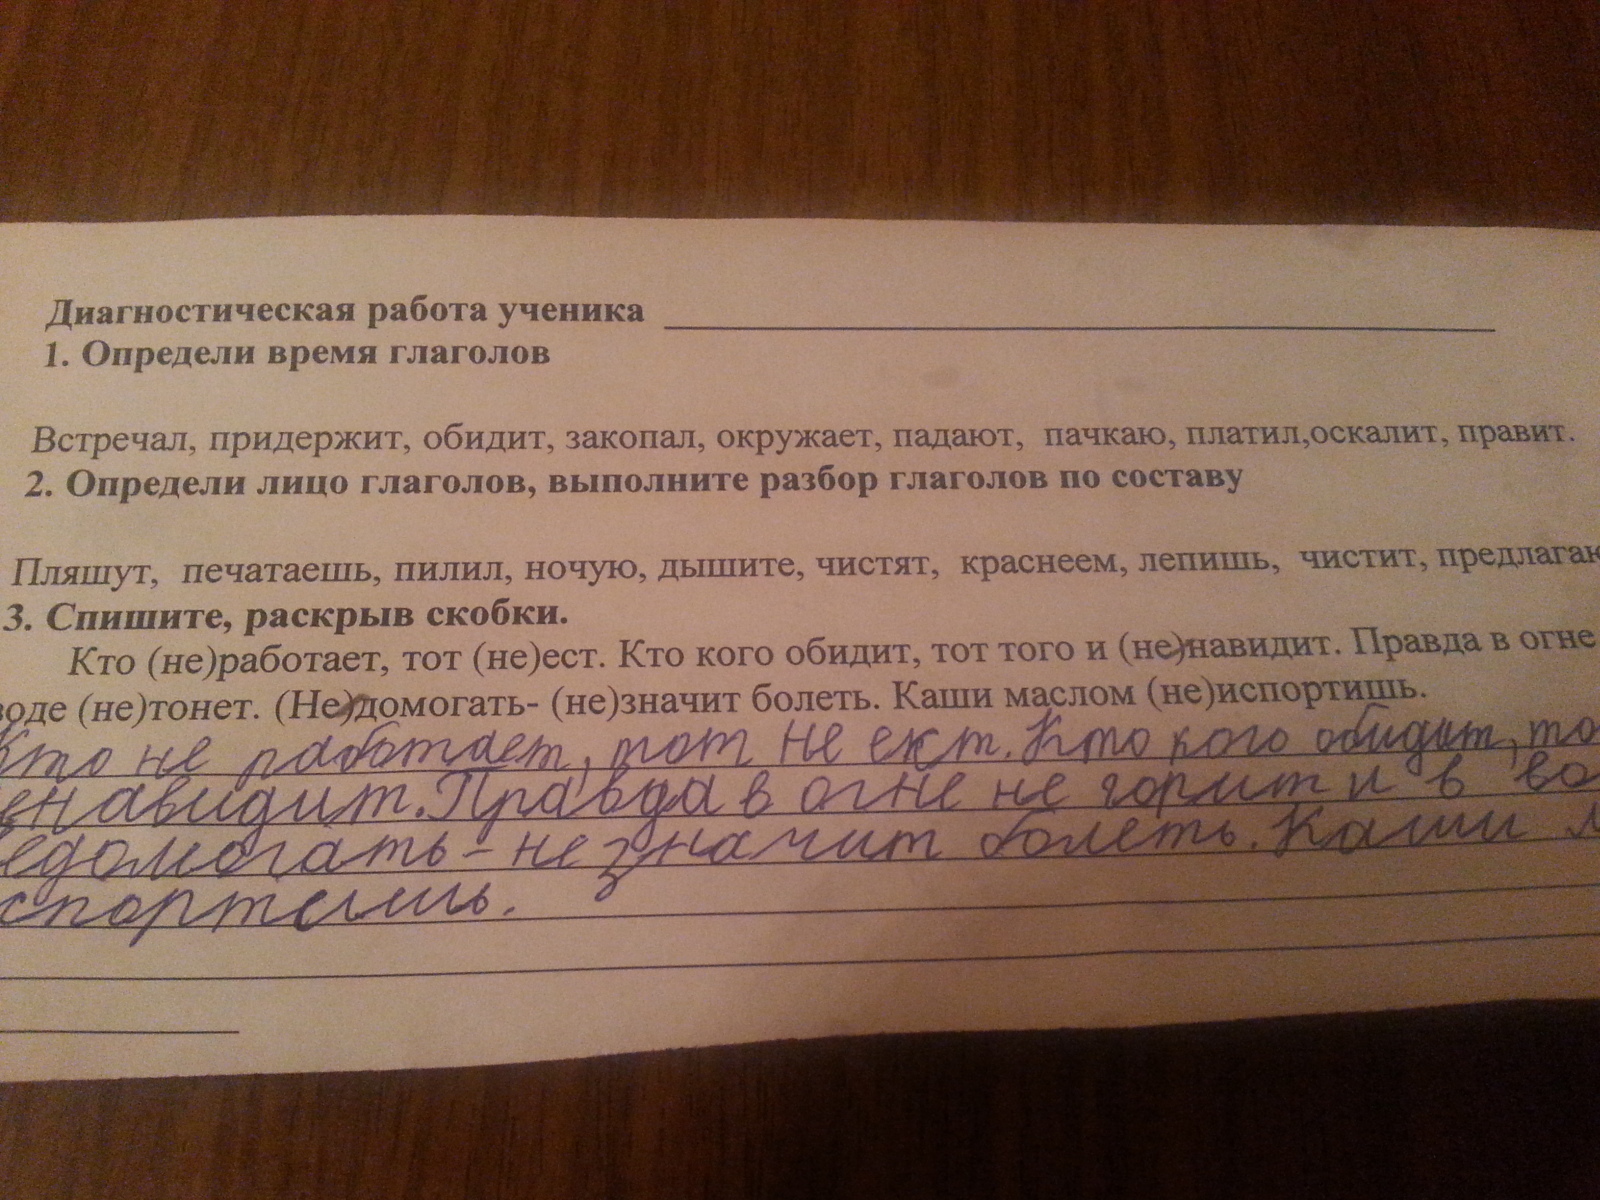 Диагностическая работа ученика
1. Определи время глаголов
Встречал, придержит, обидит, закопал, окружает, падают, пачкаю, платил,оскалит, правит.
2. Определи лицо глаголов, выполните разбор глаголов по составу
Пляшут, печатаешь, пилил, ночую, дышите, чистят, краснеем, лепишь, чистит, предлагаю
3. Спишите, раскрыв скобки.
Кто (не)работает, тот (не)ест. Кто кого обидит, тот того и (не)навидит. Правда в огне
воде (не)тонет. (Не)домогать- (не)значит болеть. Каши маслом (не)испортишь.
Кто не работает, тот не ест. Кто кого обидит, то
енавидит. Правда в огне не горит и в во
едомогать - не значит болеть. Каши м
спортишь.